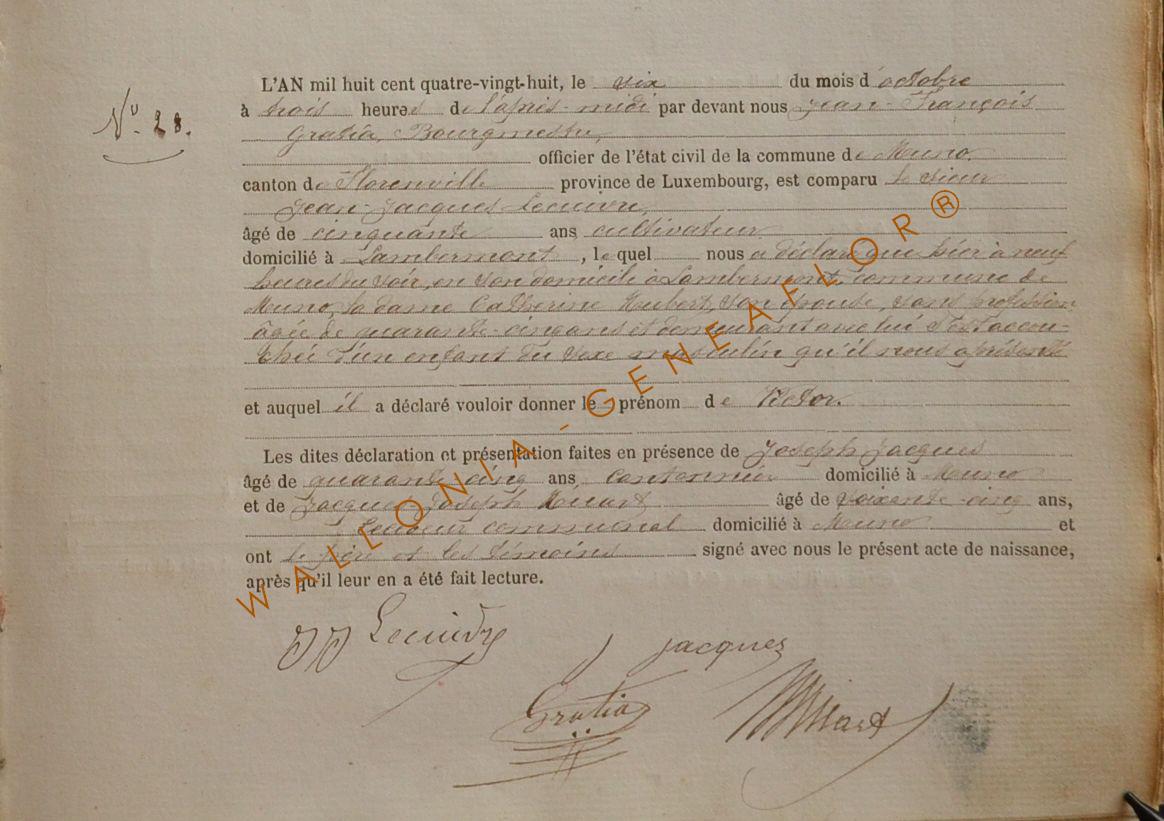 N° 28.
L'AN mil huit cent quatre-vingt-huit, le six du mois d'octobre
à trois heures de l'après-midi par devant nous Jean-François
Gratia, Bourgmestre,
officier de l'état civil de la commune de Muno,
canton de Florenville province de Luxembourg, est comparu le sieur
Jean-Jacques Lecuivre,
âgé de cinquante ans cultivateur
domicilié à Lambermont, lequel nous a déclaré que hier à neuf
heures du soir, en son domicile à Lambermont, commune de
Muno, la dame Catherine Hubert, son épouse, sans profession
âgée de quarante-cinq ans et demeurant avec lui s'est accou-
chée d'un enfant du sexe masculin qu'il nous a présenté
et auquel il a déclaré vouloir donner le prénom de Victor.
Les dites déclaration et présentation faites en présence de Joseph Jacques
âgé de quarante cinq ans, cantonnier domicilié à Muno
et de Jacques Joseph âgé de soixante-cinq ans,
communal domicilié à Muno et
ont le père et les témoins signé avec nous le présent acte de naissance,
après qu'il leur en a été fait lecture.
JJ Lecuivre
J Jacques
Gratia
WALLONIA-GENEAFLOR®